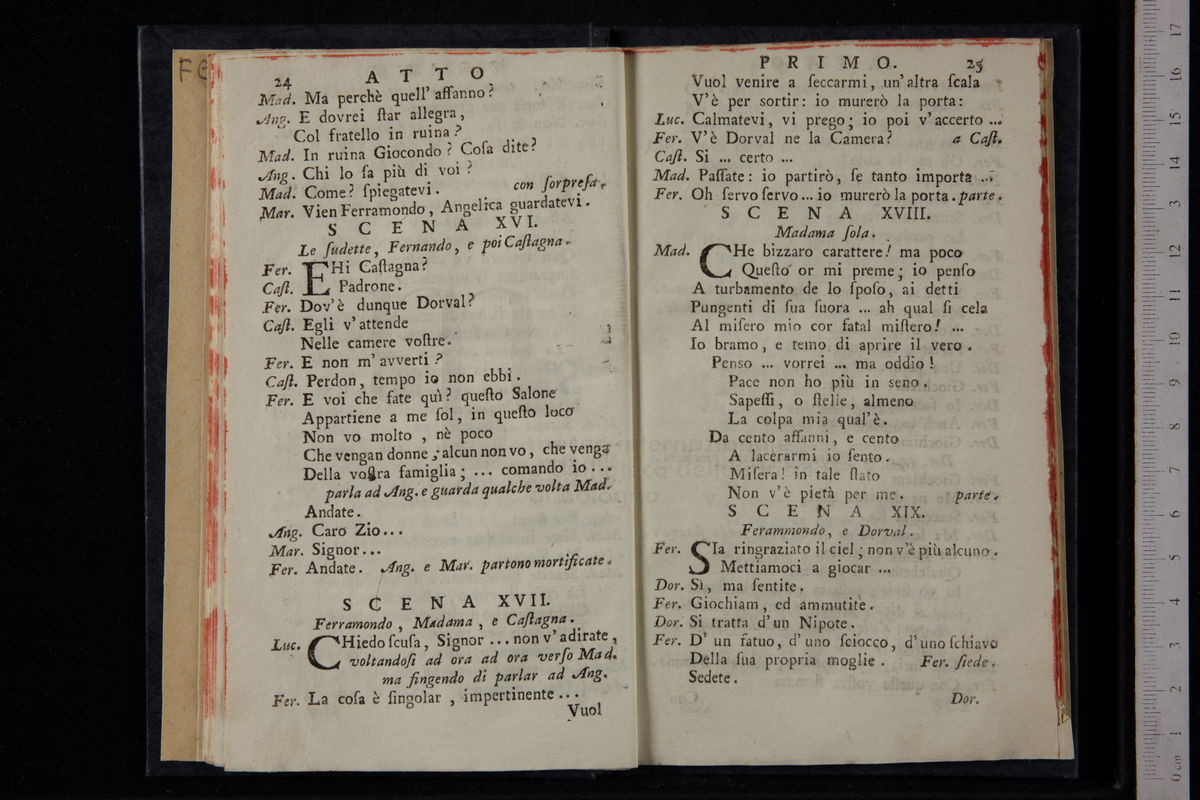 24 ATTO
Mad. Ma perchè quell' affanno?
Ang. E dovrei ſtar allegra,
Col fratello in ruina?
Mad. In ruina Giocondo? Coſa dite?
Ang. Chi lo ſa più di voi?
Mad. Come? ſpiegatevi. con ſorpreſa.
Mar. Vien Ferramondo, Angelica guardatevi.
SCENA XVI.
Le ſudette, Fernando, e poi Caſtagna.
Fer. EHi Caſtagna?
Caſt. Padrone.
Fer. Dov'è dunque Dorval?
Caſt. Egli v'attende
Nelle camere voſtre.
Fer. E non m' avverti?
Caſt. Perdon, tempo io non ebbi.
Fer. E voi che fate quì? queſto Salone
Appartiene a me ſol, in queſto loco
Non vo molto, nè poco
Che vengan donne; alcun non vo, che venga
Della voſtra famiglia; ... comando io ...
parla ad Ang. e guarda qualche volta Mad.
Andate.
Ang. Caro Zio...
Mar. Signor...
Fer. Andate. Ang. e Mar. partono mortificate.
SCENA XVII.
Ferramondo, Madama, e Caſtagna.
Luc. CHiedo ſcuſa, Signor ... non v' adirate,
voltandoſi ad ora ad ora verſo Mad.
ma fingendo di parlar ad Ang.
Fer. La coſa è ſingolar, impertinente...
Vuol
PRIMO. 25
Vuol venire a ſeccarmi, un'altra ſcala
V'è per sortir: io murerò la porta:
Luc. Calmatevi, vi prego; io poi v'accerto ...
Fer. V'è Dorval ne la Camera? a Caſt.
Caſt. Si ... certo ...
Mad. Paſſate: io partirò, ſe tanto importa ...
Fer. Oh ſervo ſervo... io murerò la porta. parte.
SCENA XVIII.
Madama ſola.
Mad. CHe bizzaro carattere! ma poco
Queſto or mi preme; io penſo
A turbamento de lo ſpoſo, ai detti
Pungenti di ſua ſuora ... ah qual ſi cela
Al miſero mio cor fatal miſtero! ...
Io bramo, e temo di aprire il vero.
Penso ... vorrei ... ma oddio!
Pace non ho più in seno.
Sapeſſi, o ſtelle, almeno
La colpa mia qual'è.
Da cento affanni, e cento
A lacerarmi io ſento.
Miſera! in tale ſtato
Non v'è pietà per me. parte.
SCENA XIX.
Ferammondo, e Dorval.
Fer. SIa ringraziato il ciel; non v'è più alcuno.
Mettiamoci a giocar ...
Dor. Sì, ma ſentite.
Fer. Giochiam, ed ammutite.
Dor. Si tratta d'un Nipote.
Fer. D' un fatuo, d' uno ſciocco, d'uno ſchiavo
Della ſua propria moglie. Fer. ſiede.
Sedete.
Dor.